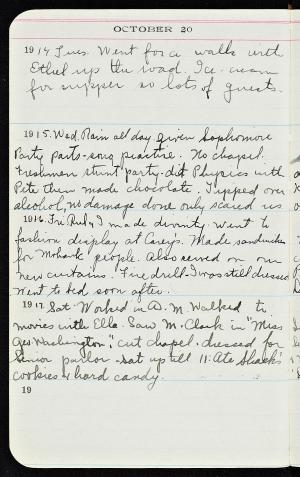 OCTOBER 20
1914 Tues. Went for a walk with
Ethel up the road. Ice-cream
for supper so lots of guests.
1915. Wed. Rain all day given Sophomore
Party parts-song practice. No chapel.
Freshmen stunt party-did Physics with
Pete then made chocolate. Tipped over
alcohol, no damage done only scared us
1916. Fri. Ruby & I made divinity. Went to
fashion display at Carey's. Made sandwiches
for Mohawk people. Also served on our
new curtains. Fire drill-I was still dressed
Went to bed soon after.
1917 Sat. Worked in A.M. Walked to
movies with Ella. Saw M. Clark in "Miss
Geo Washington." cut chapel. dressed for
Senior parlor. sat up till 11. Ate Shack's
cookies & hard candy.
19